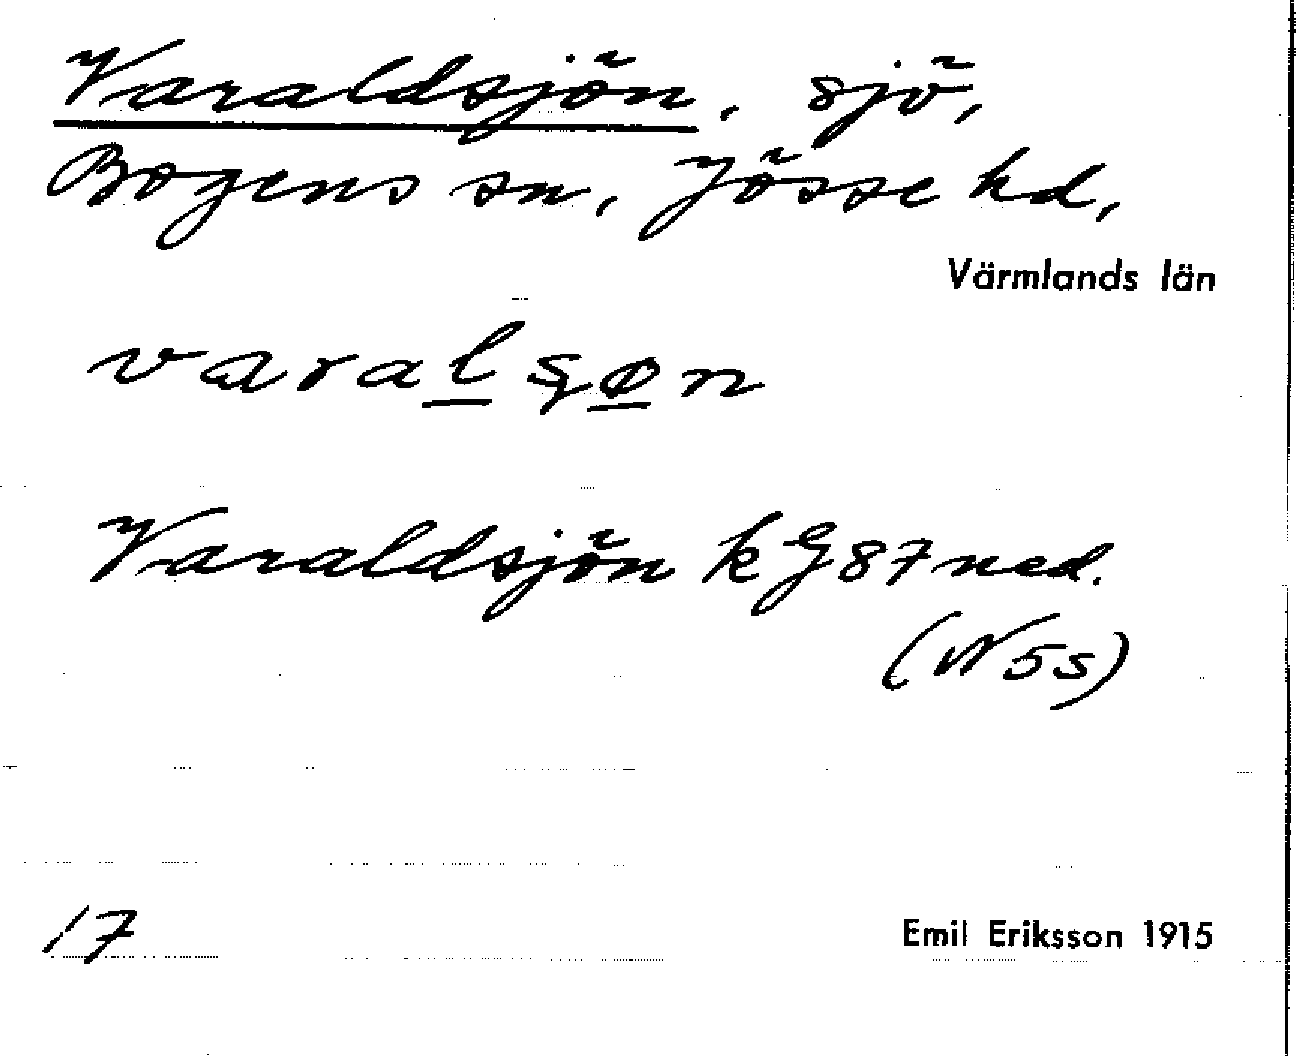 Varaldsjön, sjö,
Bogens sn, Jösse hd,
Värmlands län
varalsøn
Varaldsjön k G 87 ned.
(N 5s)
17
Emil Eriksson 1915